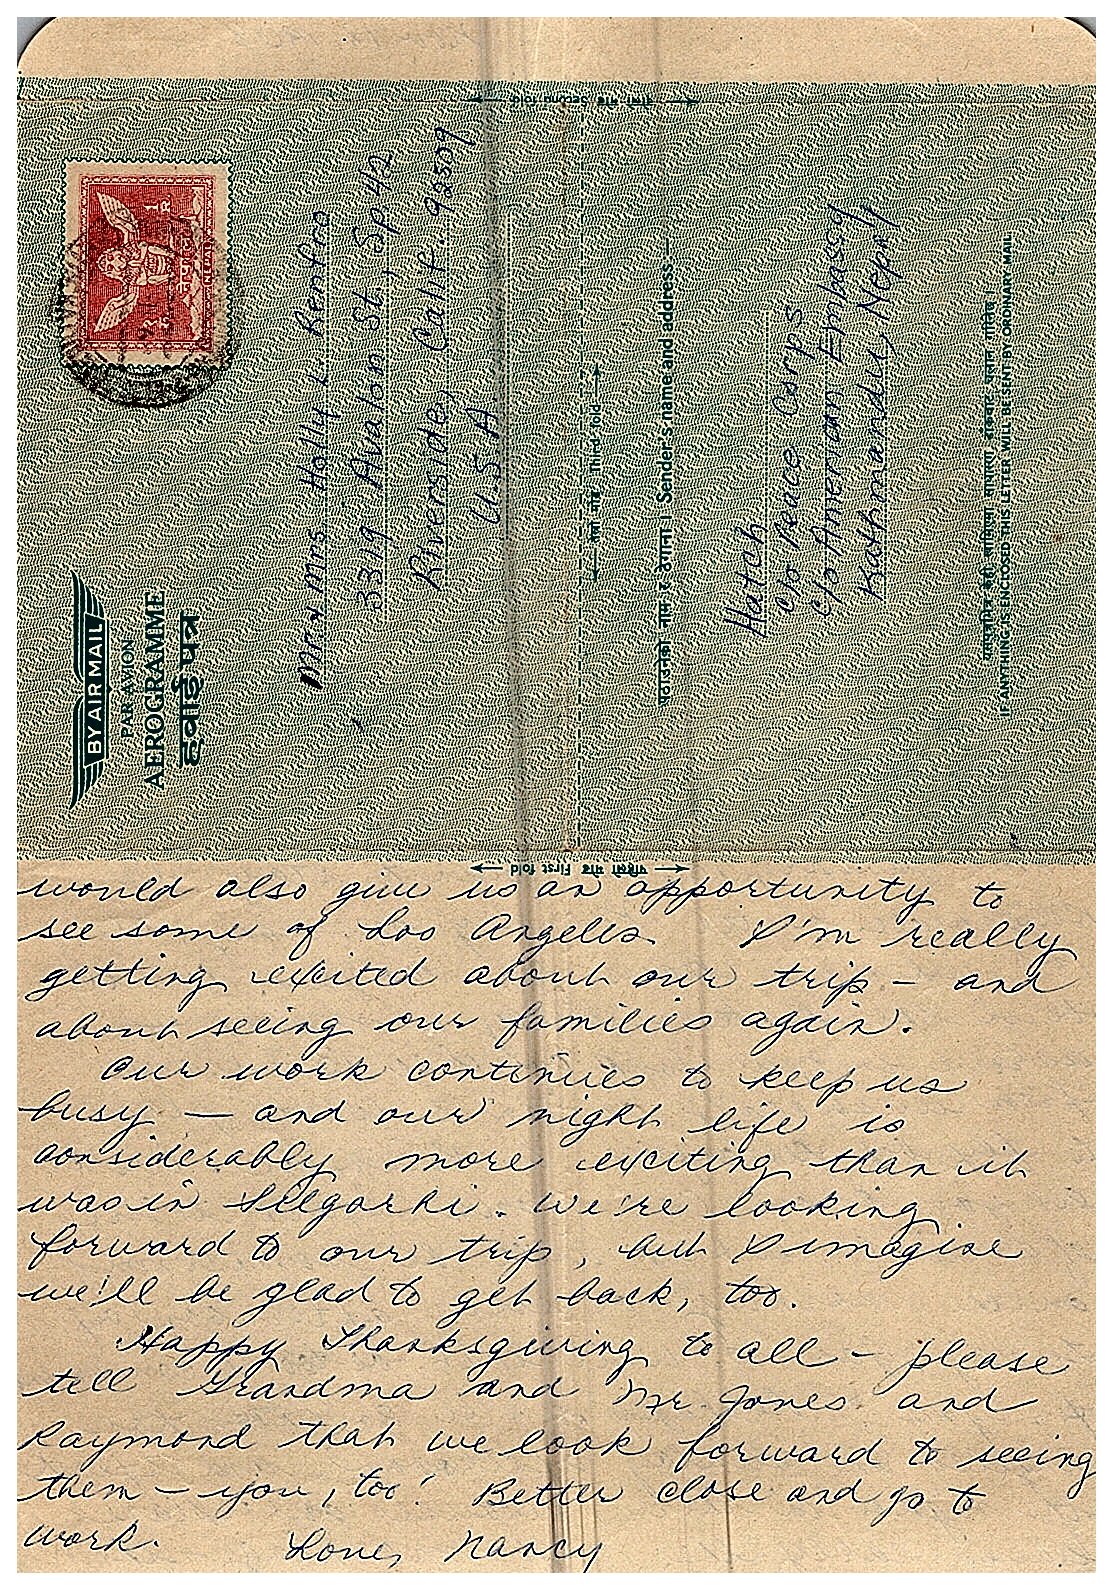 दोस्रो मोड Second fold
1 R
नेपाल
NEPAL
BY AIR MAIL
PAR AVION
AEROGRAMME
हवाई पत्र
Mr & Mrs Holly L. Renfro
3319 Avalon St., Sp 42
Riverside, Calif. 92509
U.S.A.
तेस्रो मोड Third fold
पठाउनेको नाम र ठेगाना । Sender's name and address
Hatch
c/o Peace Corps
c/o American Embassy
Kathmandu, Nepal
एसभित्र केही राखिएमा साधारण डाकबाट चलान गरिनेछ ।
IF ANYTHING IS ENCLOSED THIS LETTER WILL BE SENT BY ORDINARY MAIL
पहिलो मोड First fold
would also give us an opportunity to
see some of Los Angeles. I'm really
getting excited about our trip – and
about seeing our families again.
Our work continues to keep us
busy – and our night life is
considerably more exciting than it
was in Silgarhi. We're looking
forward to our trip, but I imagine
we'll be glad to get back, too.
Happy Thanksgiving to all – please
tell Grandma and Mr. Jones and
Raymond that we look forward to seeing
them – you, too! Better close and go to
work.
Love, Nancy